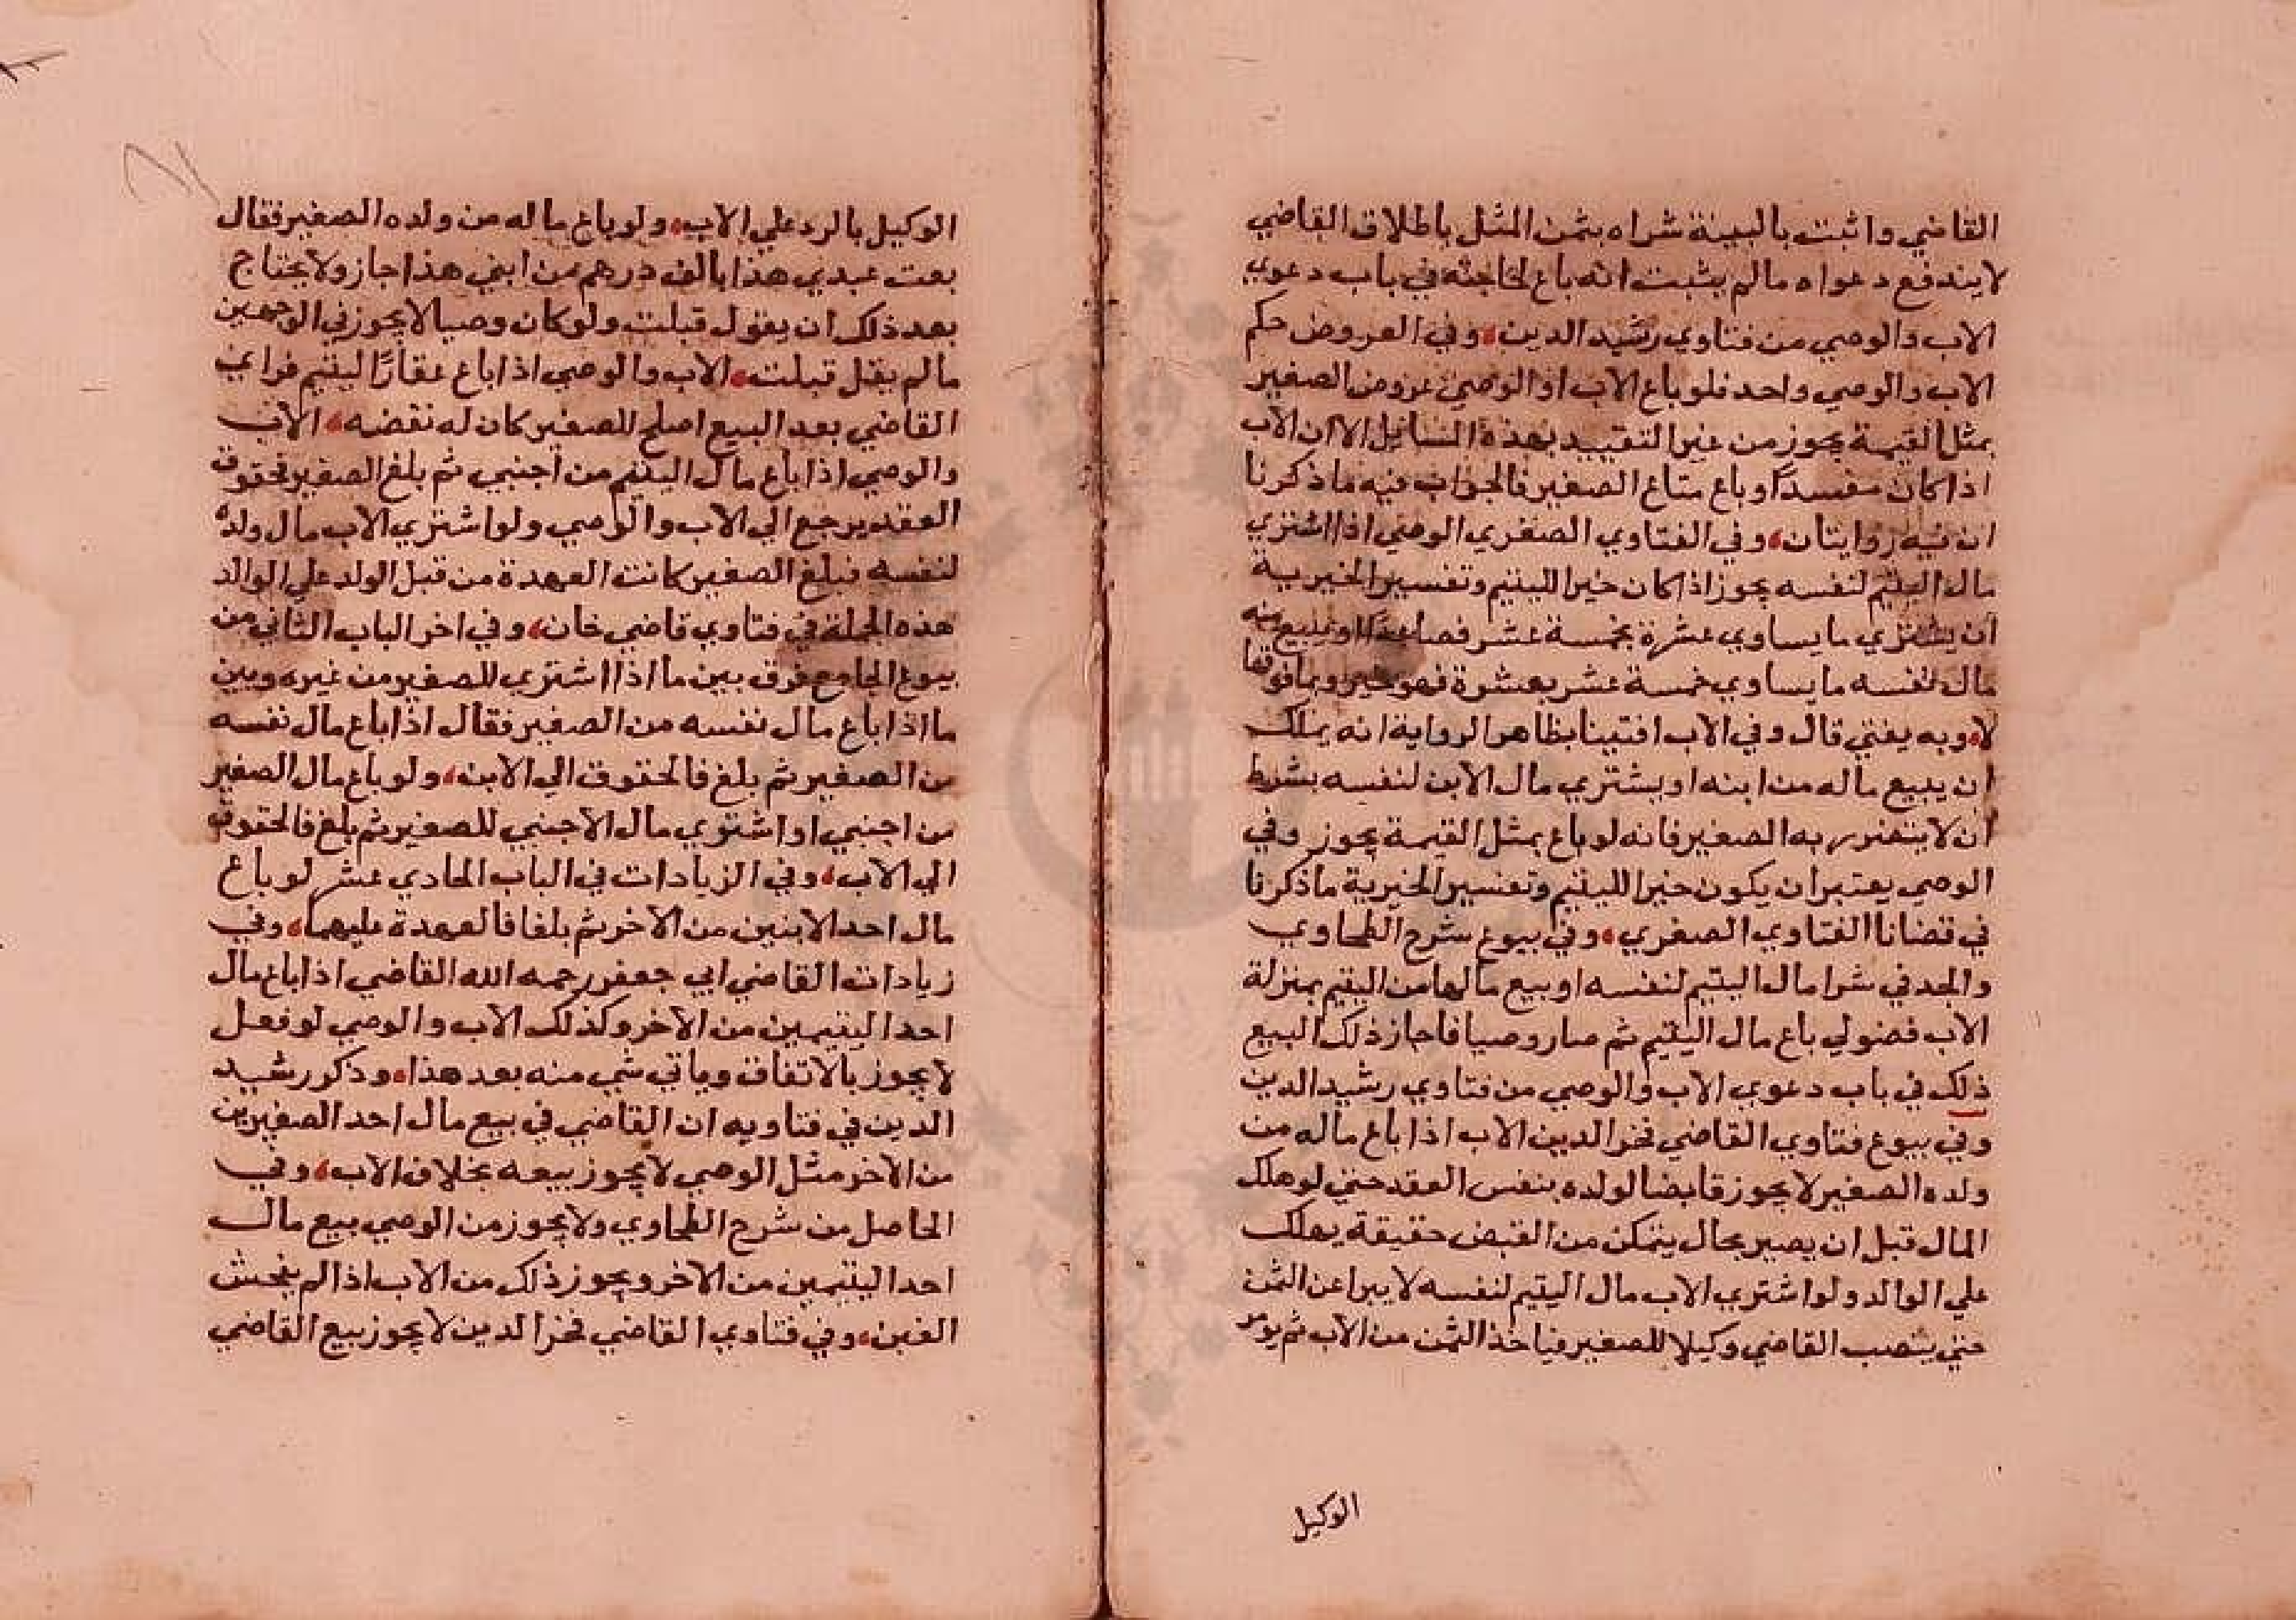 القاضي واثبت بالبينة شراه بثمن المثل باطلاق القاضي
لا يندفع دعواه مالم يثبت انه باع لحاجته في باب دعوي
الاب والوصي من فتاوي رشيد الدين، وفي العروض حكم
الاب والوصي واحد فلو باع الاب او الوصي عروض الصغير
بمثل القيمة يجوز من غير التقييد بهذه المسائل الا ان الاب
اذا كان مفسدًا وباع متاع الصغير فالجواب فيه ما ذكرنا
ان فيه روايتان، وفي الفتاوي الصغري الوصي اذا اشتري
مال اليتيم لنفسه يجوز اذا كان خيرا لليتيم وتفسير الخيرية
ان يشتري ما يساوي عشرة بخمسة عشر فصاعدًا او يبيع منه
مال نفسه ما يساوي خمسة عشر بعشرة فهو خير وبما فوقها
لا، وبه يفتي قال وفي الاب افتينا بظاهر الرواية انه يملك
ان يبيع ماله من ابنه او يشتري مال الابن لنفسه بشرط
ان لا يتضرر به الصغير فانه لو باع بمثل القيمة يجوز وفي
الوصي يعتبر ان يكون خيرا لليتيم وتفسير الخيرية ما ذكرنا
في قضانا الفتاوي الصغري، وفي بيوع شرح الطحاوي
والجد في شرا مال اليتيم لنفسه او بيع مالها من اليتيم بمنزلة
الاب فضولي باع مال اليتيم ثم صار وصيا فاجاز ذلك البيع
ذلك في باب دعوي الاب والوصي من فتاوي رشيد الدين
وفي بيوع فتاوي القاضي فخر الدين الاب اذا باع ماله من
ولده الصغير لا يجوز قابضا لولده بنفس العقد حتي لو هلك
المال قبل ان يصير بحال يتمكن من القبض حقيقة يهلك
علي الوالد ولو اشتري الاب مال اليتيم لنفسه لا يبرا عن الثمن
حتي ينصب القاضي وكيلا للصغير فياخذ الثمن من الاب ثم يومر
الوكيل
الوكيل بالرد علي الاب، ولو باع ماله من ولده الصغير فقال
بعت عبدي هذا بالف درهم من ابني هذا جاز ولا يحتاج
بعد ذلك ان يقول قبلت ولو كان وصيا لا يجوز في الوجهين
مالم يقل قبلت، الاب والوصي اذا باع عقارًا ليتيم فراي
القاضي بعد البيع اصلح للصغير كان له نقضه، الاب
والوصي اذا باع مال اليتيم من اجنبي ثم بلغ الصغير فحقوق
العقد يرجع الي الاب والوصي ولو اشتري الاب مال ولده
لنفسه فبلغ الصغير كانت العهدة من قبل الولد علي الوالد
هذه الجملة في فتاوي قاضي خان، وفي اخر الباب الثاني من
بيوع الجامع فرق بين ما اذا اشتري للصغير من غيره وبين
ما اذا باع مال نفسه من الصغير فقال اذا باع مال نفسه
من الصغير ثم بلغ فالحقوق الي الابن، ولو باع مال الصغير
من اجنبي او اشتري مال الاجنبي للصغير ثم بلغ فالحقوق
الي الاب، وفي الزيادات في الباب الحادي عشر لو باع
مال احد الابنين من الاخر ثم بلغا فالعهدة عليهما، وفي
زيادات القاضي ابي جعفر رحمه الله القاضي اذا باع مال
احد اليتيمين من الاخر وكذلك الاب والوصي لو فعل
لا يجوز بالاتفاق وياتي شي منه بعد هذا، وذكر رشيد
الدين في فتاويه ان القاضي في بيع مال احد الصغيرين
من الاخر مثل الوصي لا يجوز بيعه بخلاف الاب، وفي
الحاصل من شرح الطحاوي ولا يجوز من الوصي بيع مال
احد اليتيمين من الاخر ويجوز ذلك من الاب اذا لم يفحش
الغبن، وفي فتاوي القاضي فخر الدين لا يجوز بيع القاضي